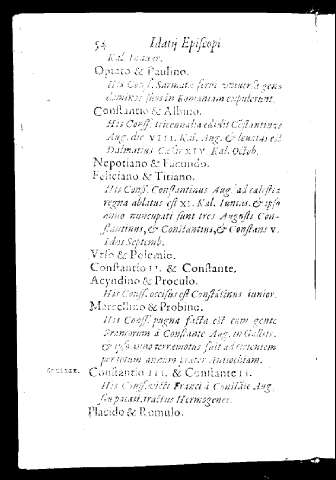 54 Idatij Episcopi
Kal. Ianuar.
Optato & Paulino.
His Conss. Sarmatæ servi universa gens
dominos suos in Romaniam expulerunt.
Constantio & Albino.
His Conss. tricennalia edidit Constantinus
Aug. die VIII. Kal. Aug. & levatus est
Dalmatius Cæsar XIV. Kal. Octob.
Nepotiano & Facundo.
Feliciano & Titiano.
His Conss. Constantinus Aug. ad cælestia
regna ablatus est XI. Kal. Iunias. & ipso
anno nuncupati sunt tres Augusti Con-
stantinus, & Constantius, & Constans V.
Idus Septemb.
Vrso & Polemio.
Constantio II. & Constante.
Acyndino & Proculo.
His Conss. occisus est Constantinus iunior.
Marcellino & Probino.
His Conss. pugna facta est cum gente
Francorum à Constante Aug. in Gallijs.
& ipso anno terræmotus fuit ad Orientem
per totum annum præter Antiochiam.
Constantio III. & Constante II.
His Conss. victi Franci à Constante Aug.
seu pacati, tractus Hermogenes.
Placido & Romulo.